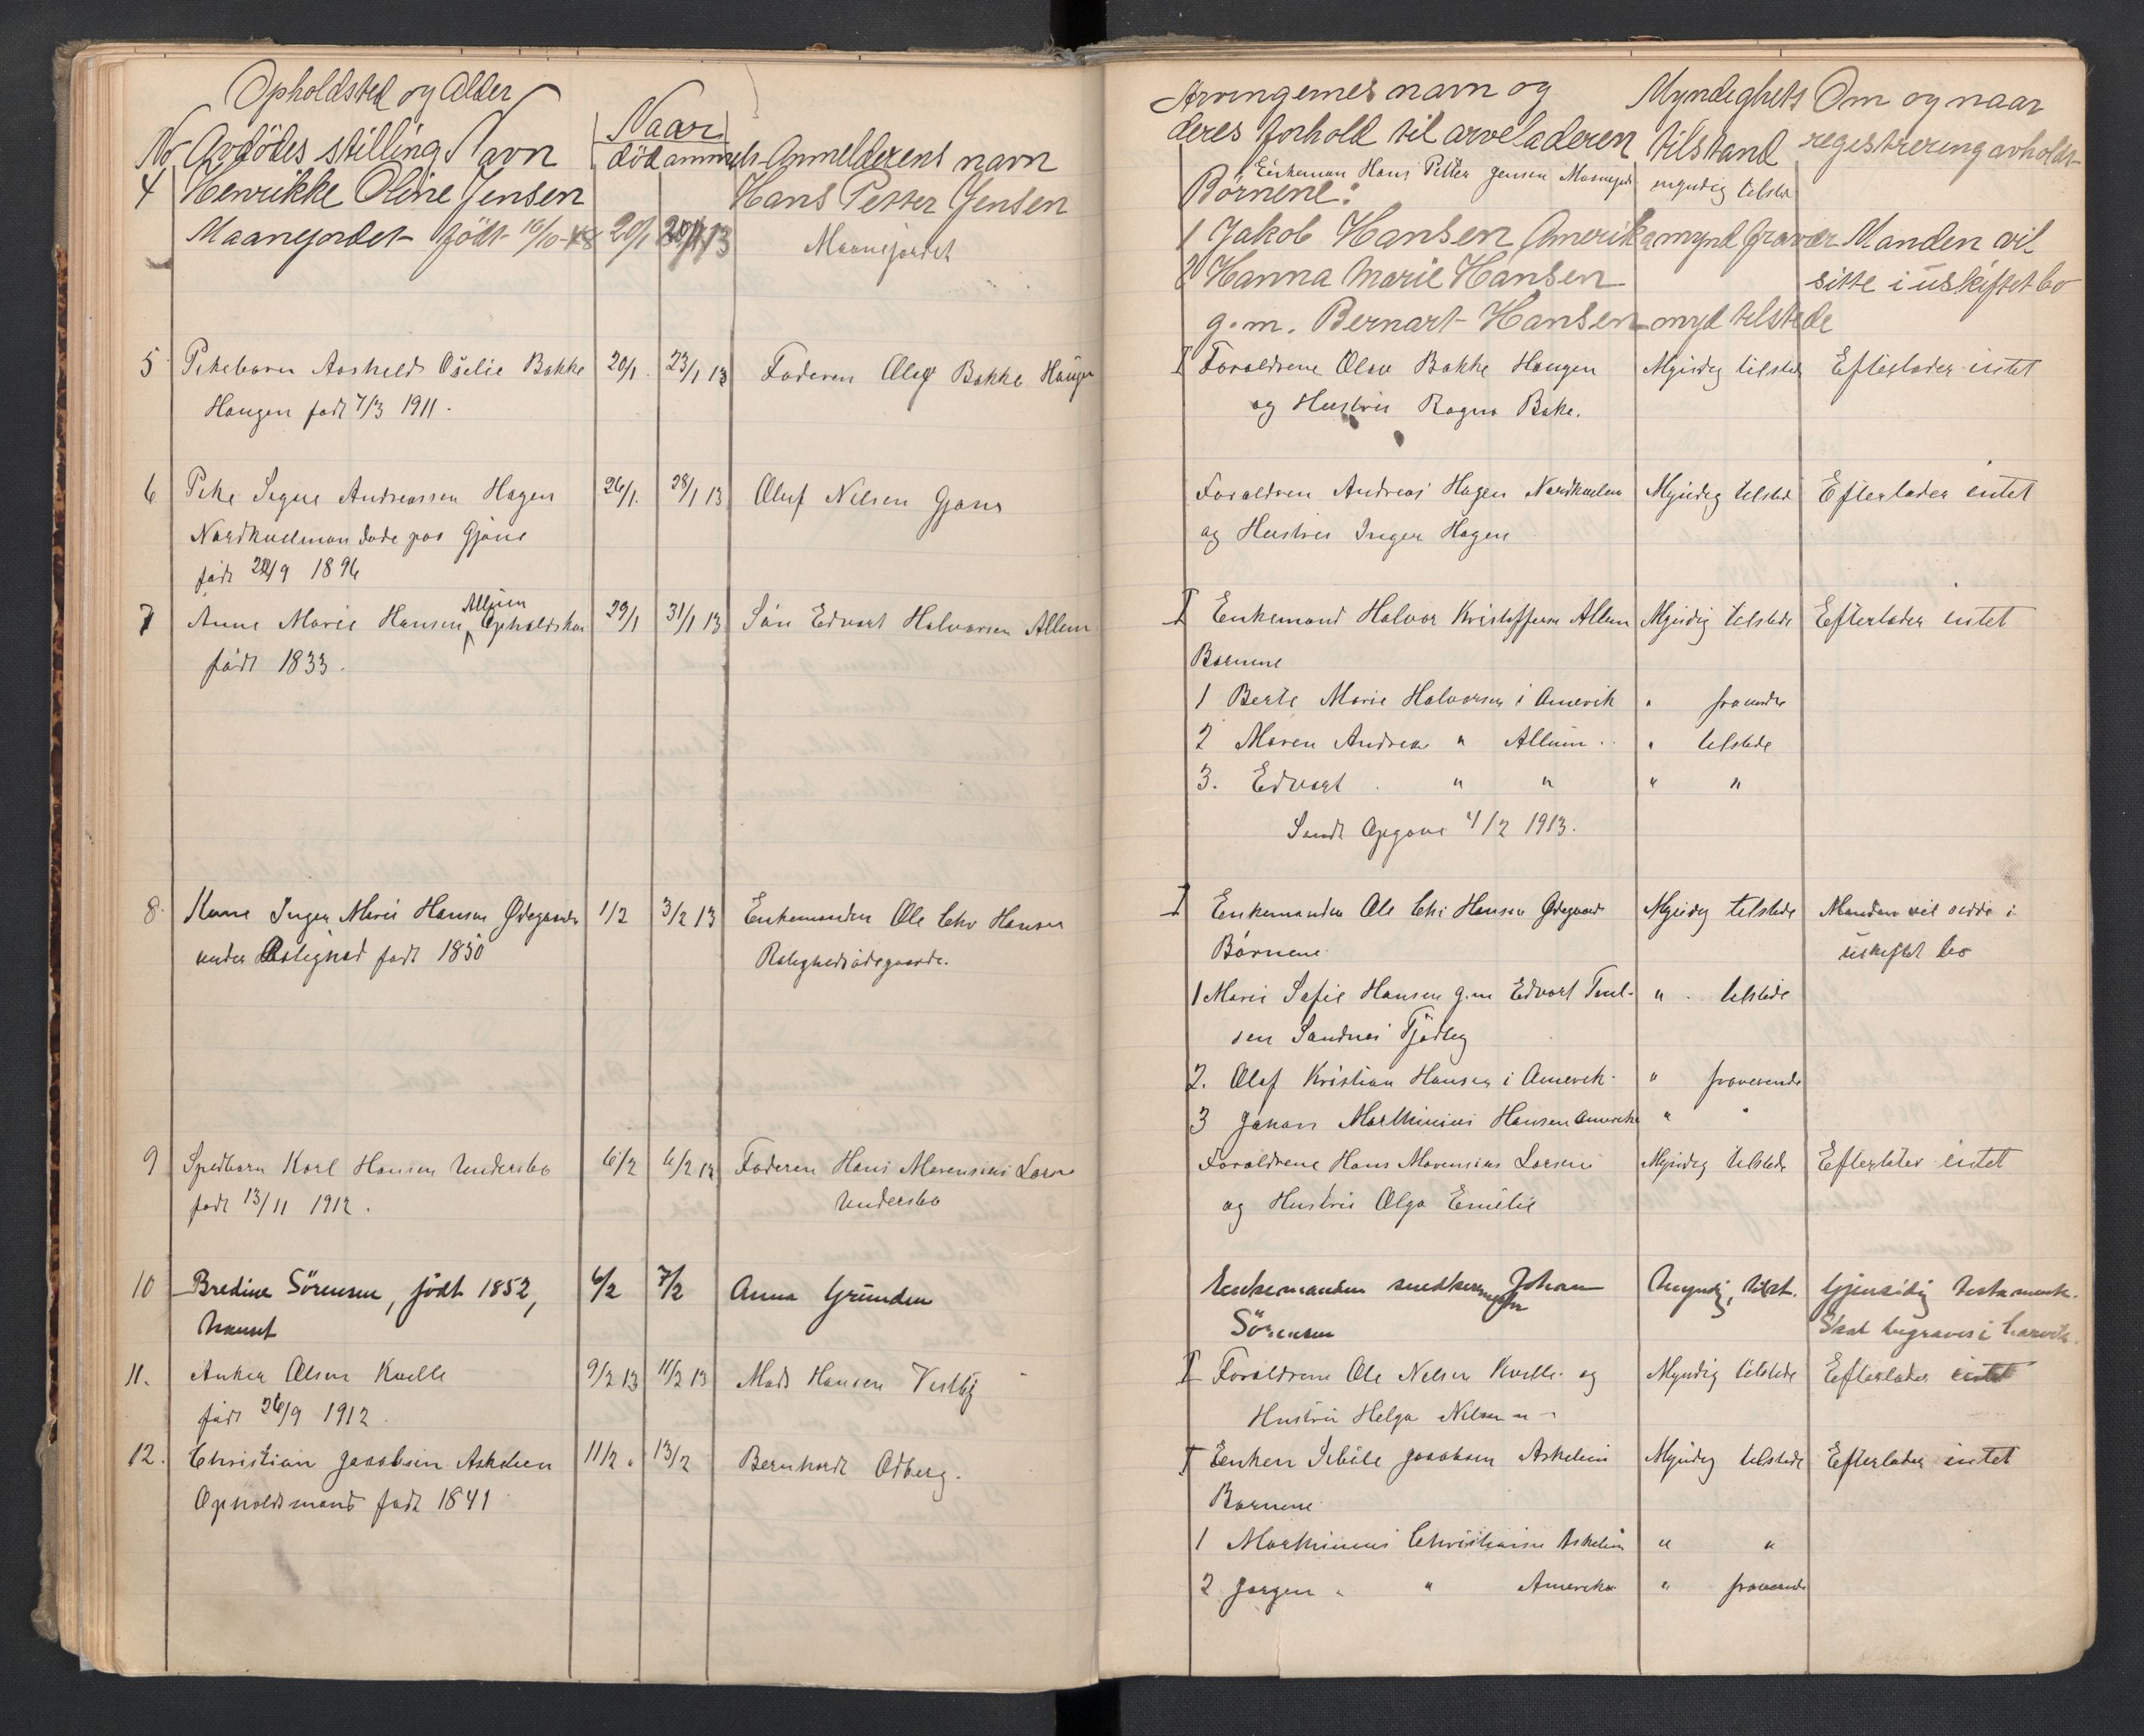 Opholdsted og Alder
No Avdödes stilling Navn
Naar
död anmeldt Anmelderens navn
4 Henrikke Oline Jensen
Maanejordet født 16/10-48 20/1 20/1 13
Hans Petter Jensen
Maanejordet
5 Pikebarn Aashild Oselie Bakke 20/1 23/1 13 Faderen Olaf Bakke Haugen
Haugen født 7/3 1911.
6 Pike Signe Andreassen Hagen 26/1. 28/1 13 Oluf Nilsen Gjøns
Nordkvelmon døde paa Gjøne
født 9 1896
7 Anne Marie Hansen Allum Opholdskone 29/1 31/1 13 Edvart Halvorsen Allum
født 1833.
8. Kone Inger Marie Hansen Ødegaarden 1/2 3/2 13 Enkemanden Ole Chr Hansen
under Rolighed født 1850 Rolighedsødegaarde.
9 Spedbarn Karl Hansen Undersbo 6/2 6/2 13 Faderen Hans Marensius Larsen
født 13/11 1912. Undersbo
10 Bredine Sörensen, födt 1852, 6/2 7/2 Anna Gründen
11. Anker Olsen Kvelle 9/2 13 11/2 13 Mads Hansen Vestby
født 26/9 1912.
12. Christian Jacobsen Askelien 11/2. 13/2 Bernhardt Odberg.
Opholdsmand født 1841
Arvingernes navn og
deres forhold til arveladeren
Myndighets tilstand
Om og naar registrering avholdt
Enkeman Hans Petter Jensen Maanejord myndig tilsted
Börnene:
1 Jakob Hansen Amerika mynd fravær Manden vil
2 Hanna Marie Hansen sitte i uskiftet bo
g.m. Bernart Hansen mynd tilstede
I Foraldrene Olav Bakke Haugen Myndig tilsted Efterlader intet
og Hustru Ragna Bake.
Foraldren Andreas Hagen Nordkvelmo Myndig tilsted Efterlader intet
og Hustru Inger Hagen
I Enkemand Halvor Kristoffersen Allum Myndig tilstede Efterlader intet
Børnene
1 Berte Marie Halvorsen i Amerik " fraværende
2 Maren Andrea " Allum. " tilstede
3. Edvart " " " "
Sendt Opgave 4/2 1913.
I Enkemanden Ole Chr Hansen Ødegaard Myndig tilstede Manden vil sidde i
Börnene uskiftet bo
1 Marie Sofie Hansen g.m Edvart Paul- " tilstede
sen Sandnes Tjødling
2. Olaf Kristian Hansen i Amerik. " fraverende
3 Johan Marthinius Hansen Amerika " "
Foraldrene Hans Marensius Larsen Myndig tilstede Efterlater intet
og Hustru Olga Emilie
Enkemanden snedkermester Johan Myndig, tilst. Gjensidig testament.
Sörensen Skal begraves i Larvik.
I Foraldrene Ole Nelsen Kvelle og Myndig tilstede Efterlader intet
Hustru Helga Nilsen "
I Enken Sibile Jacobsen Askelien Myndig tilstede Efterlader intet
Børnene
1 Marthinius Christiansen Askelien " "
2 Jørgen " " Amerika " fraverende